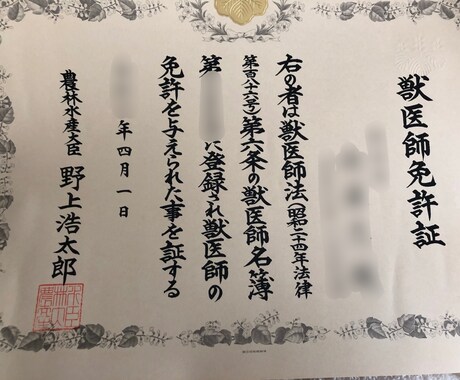 獣医師免許証
右の者は獣医師法(昭和二十四年法律
第百八十六号)第六条の獣医師名簿
第 に登録され獣医師の
免許を与えられた事を証する
年四月一日
農林水産大臣 野上浩太郎